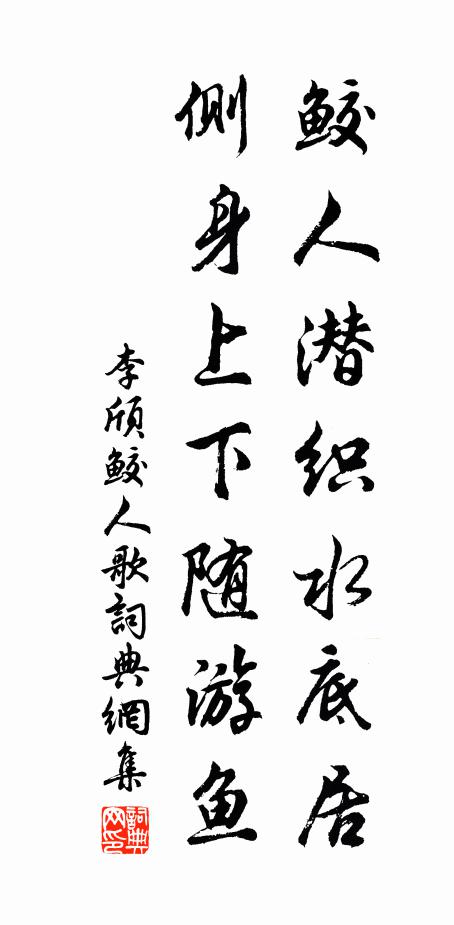 鲛人潜织水底居
侧身上下随游鱼
李颀鲛人歌詞典網集
詞典網印